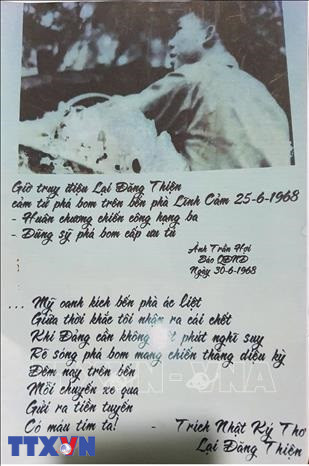 Giờ truy điệu Lại Đăng Thiện
cảm tử phá bom trên bến phà Linh Cảm 25-6-1968
- Huân chương chiến công hạng ba
- Dũng sỹ phá bom cấp ưu tú
Ảnh Trần Hợi
Báo QĐND
Ngày 30-6-1968
... Mỹ oanh kích bến phà ác liệt
Giữa thời khắc tôi nhận ra cái chết
Khi Đảng cần không phút nghĩ suy
Rẽ sóng phá bom mang chiến thắng diệu kỳ
Đêm nay trên bến
Mỗi chuyến xe qua
Gửi ra tiền tuyến
Có máu tim ta! - Trích Nhật Ký Thơ
Lại Đăng Thiện
TTXVN